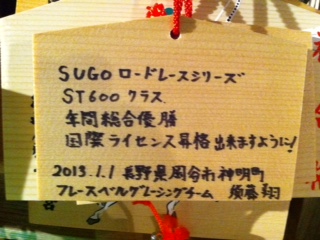 SUGO ロードレースシリーズ
ST600 クラス
年間総合優勝
国際ライセンス昇格 出来ますように!
2013.1.1 長野県岡谷市神明町
フレースベルグレーシングチーム 須藤翔